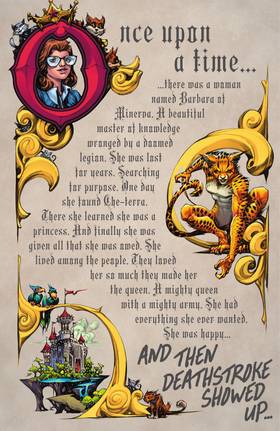 Once upon
a time...
...there was a woman
named Barbara of
Minerva. A beautiful
master of knowledge
wranged by a damned
legion. She was lost
for years. Searching
for purpose. One day
she found Che-terra.
There she learned she was a
princess. And finally she was
given all that she was owed. She
lived among the people. They loved
her so much they made her
the queen. A mighty queen
with a mighty army. She had
everything she ever wanted.
She was happy...
AND THEN
DEATHSTROKE
SHOWED
UP...